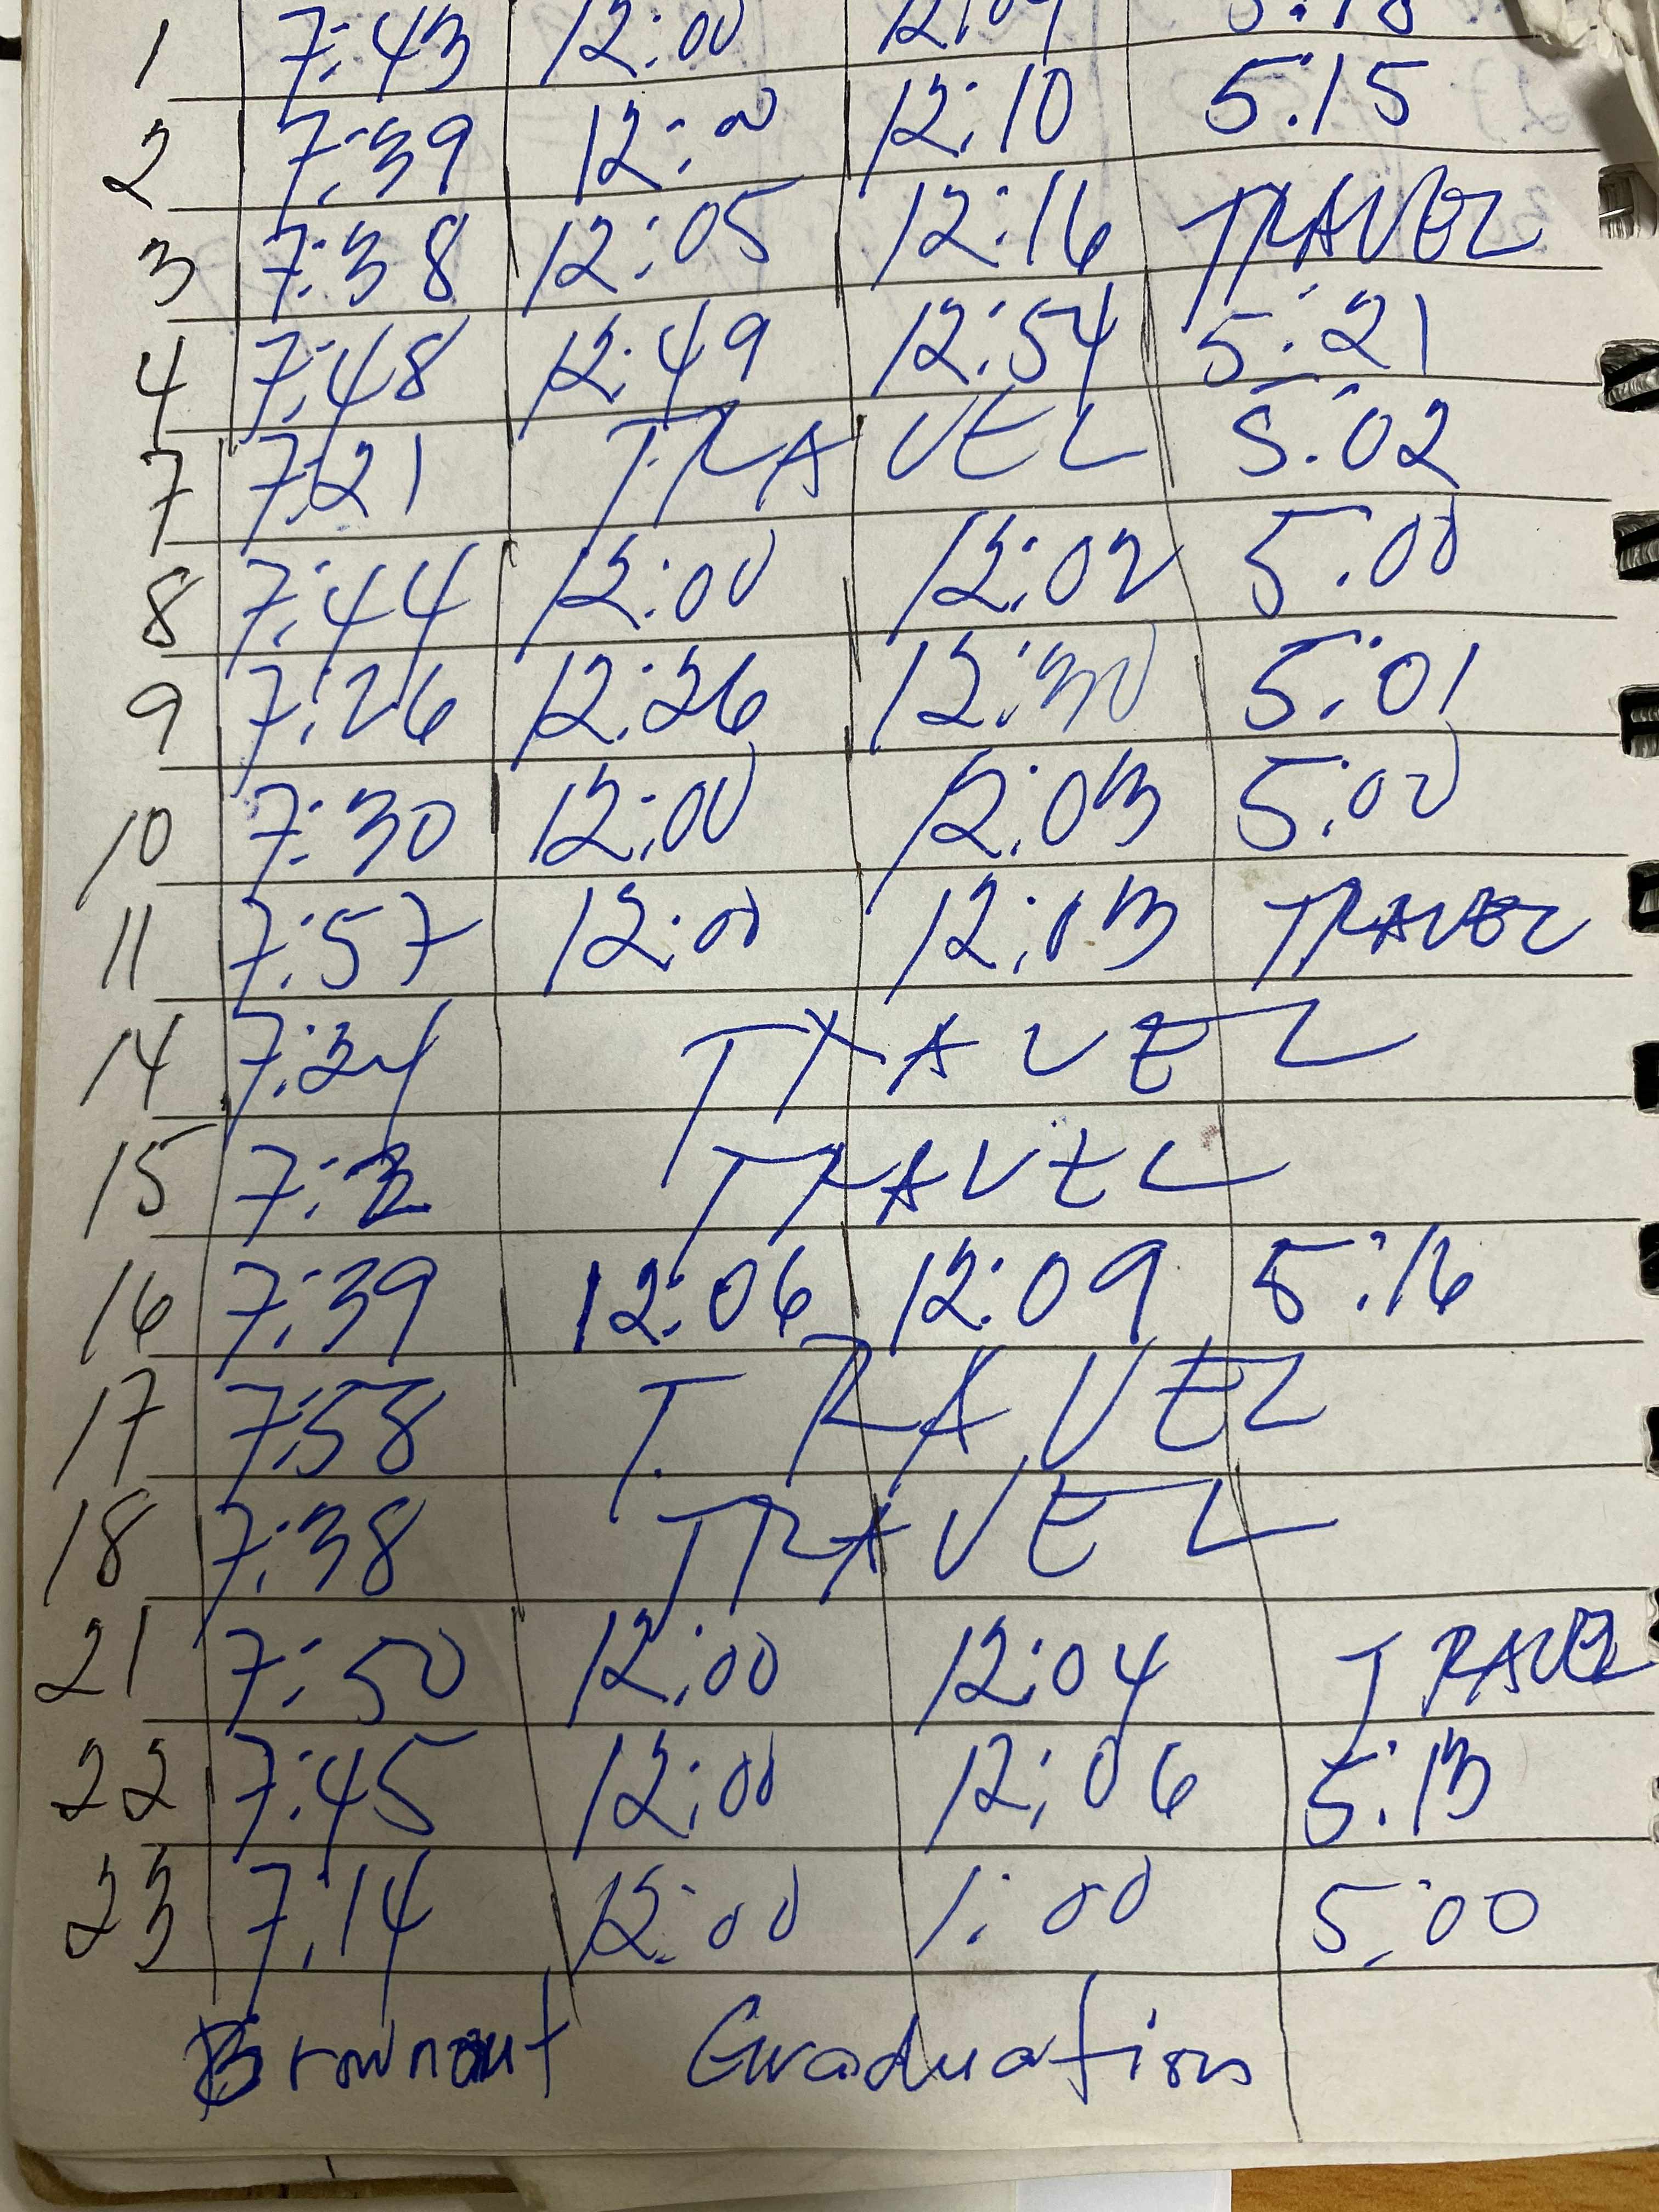 1 7:43 12:00 12:09 5:18
2 7:39 12:00 12:10 5:15
3 7:38 12:05 12:16 TRAVEL
4 7:48 12:49 12:54 5:21
7 7:21 TRAVEL 5:02
8 7:44 12:00 12:02 5:00
9 7:26 12:26 12:30 5:01
10 7:30 12:00 12:03 5:00
11 7:57 12:00 12:03 TRAVEL
14 7:34 TRAVEL
15 TRAVEL
16 7:39 12:06 12:09 5:16
17 7:58 TRAVEL
18 7:38 TRAVEL
21 7:50 12:00 12:04 TRAVEL
22 7:45 12:00 12:06 5:13
23 7:14 12:00 1:00 5:00
Brownout Graduation